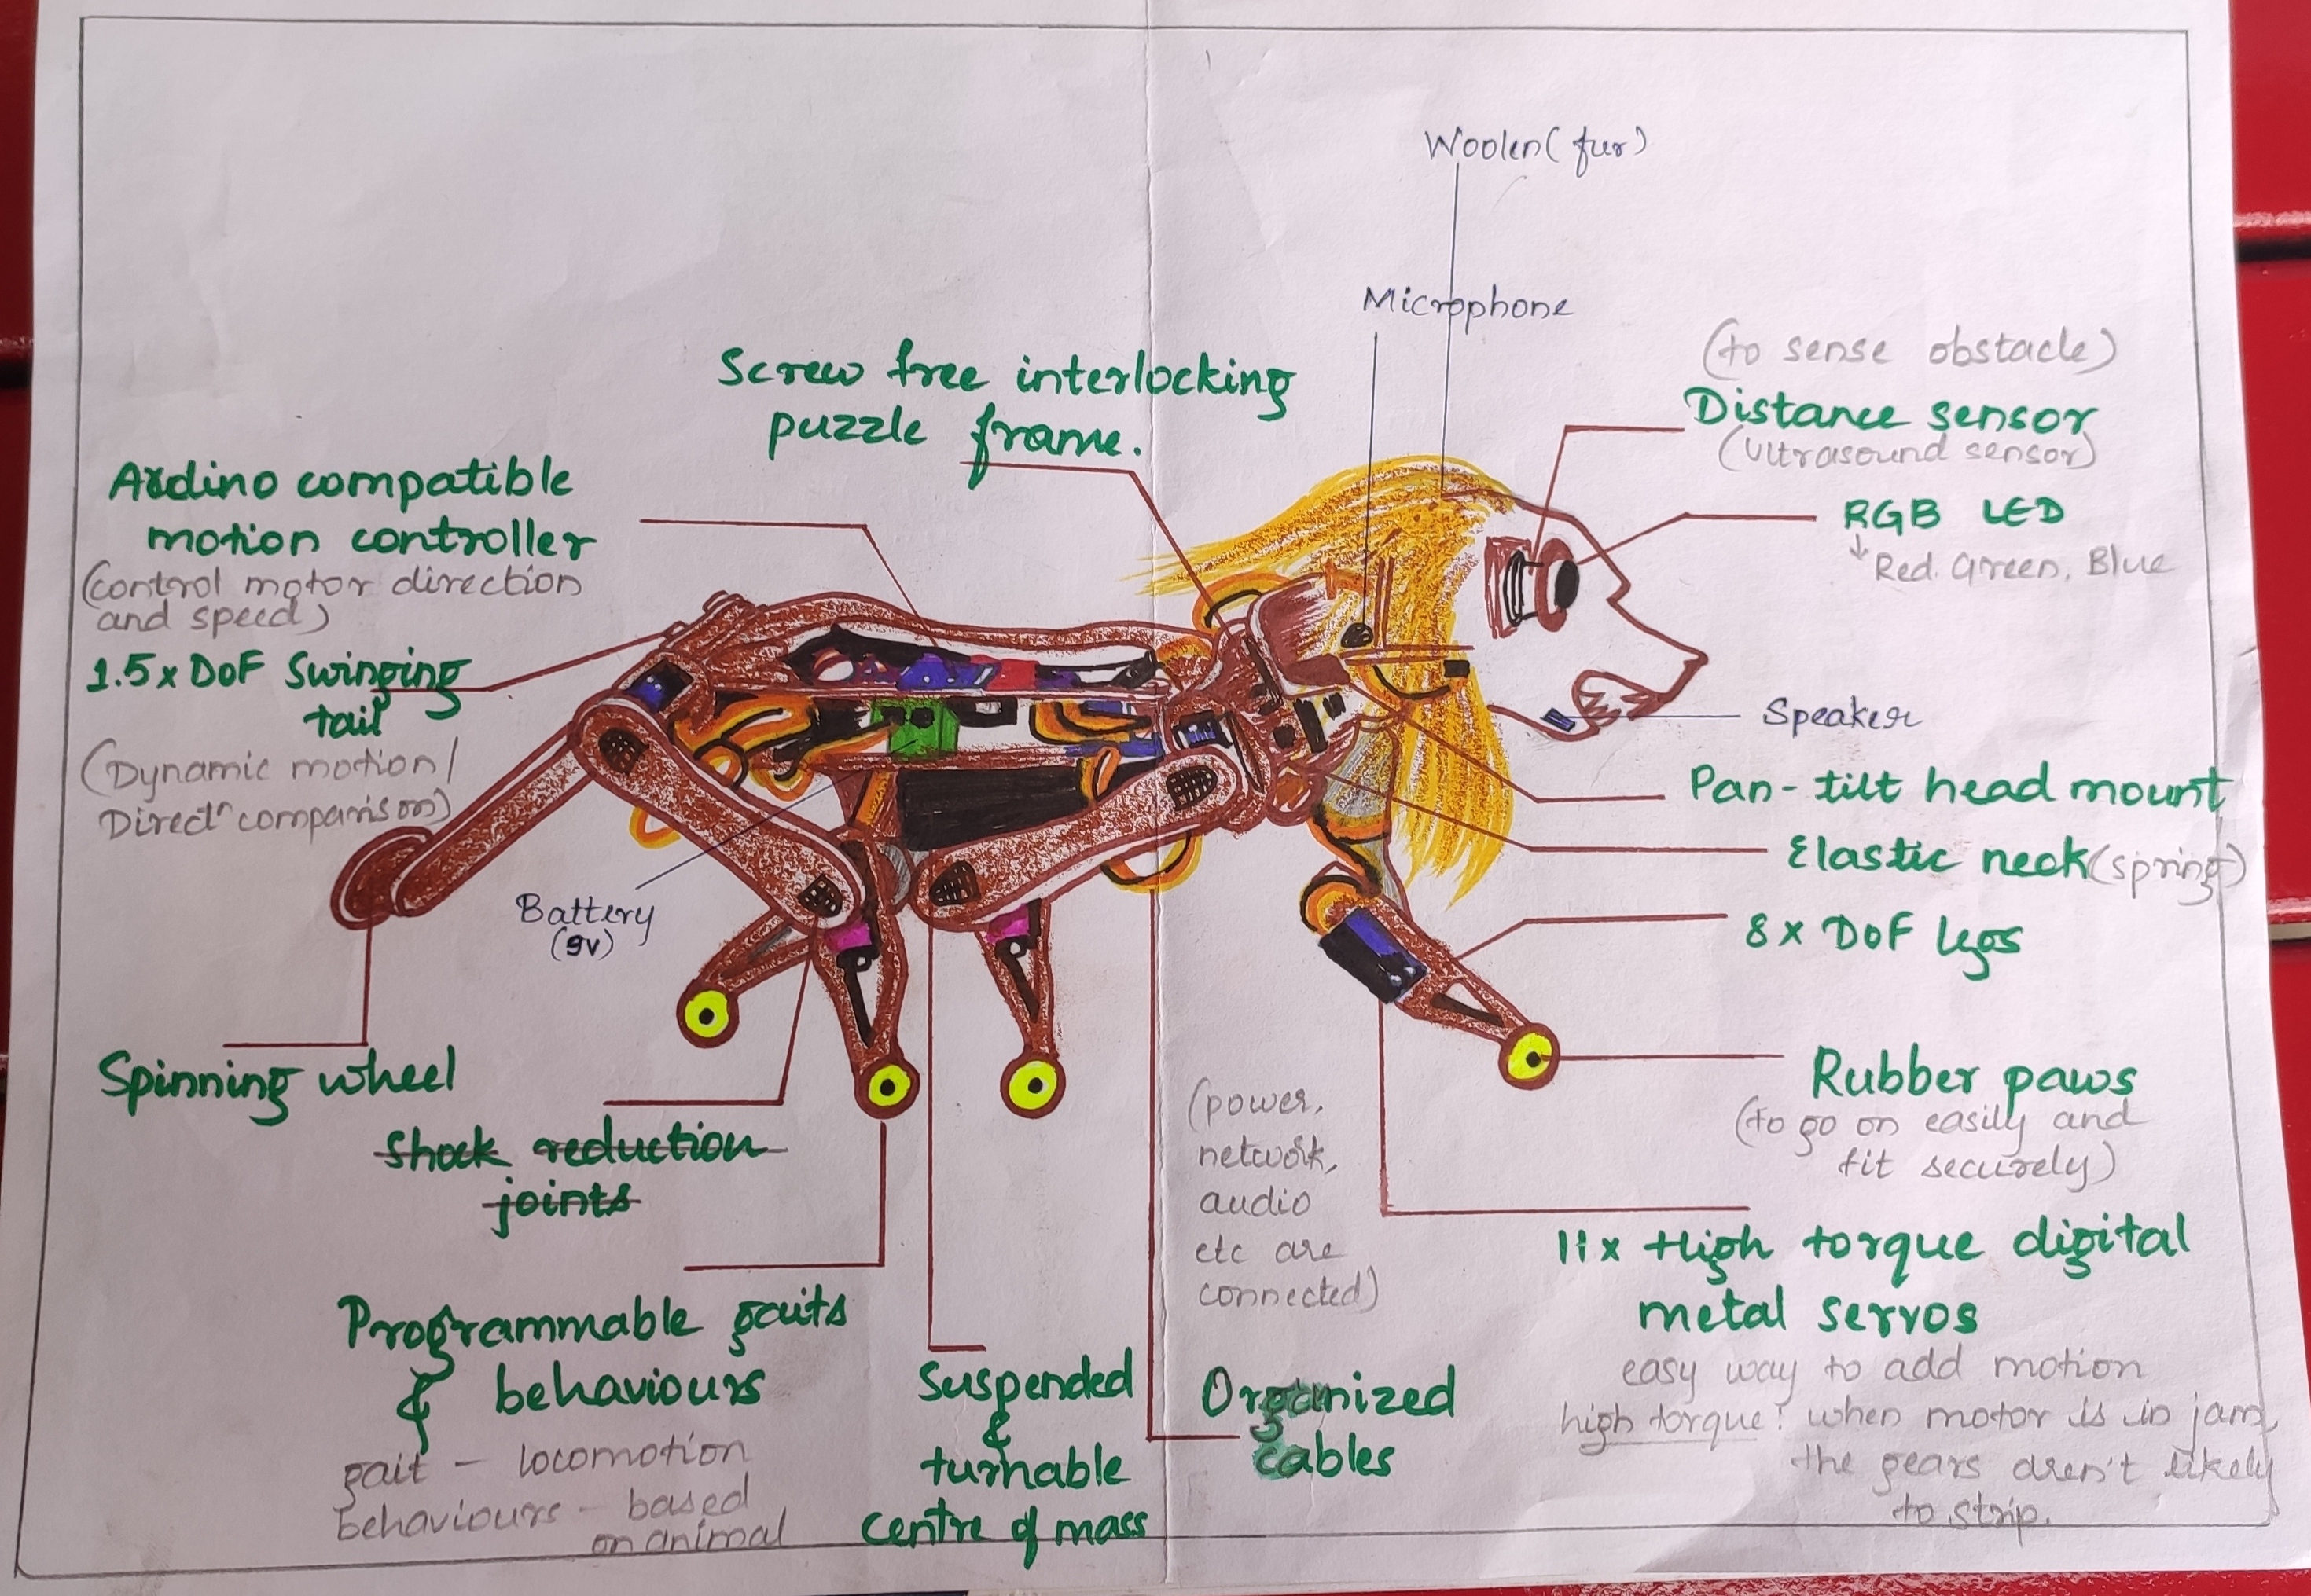 Woolen (fur)
Microphone
Screw free interlocking
puzzle frame.
(to sense obstacle)
Distance sensor
(Ultrasound sensor)
RGB LED
↓ Red. Green, Blue
Ardino compatible
motion controller
(control motor direction
and speed)
1.5x DoF Swinging
tail
(Dynamic motion /
Directn comparison)
Speaker
Pan-tilt head mount
Elastic neck (spring)
8x DoF legs
Battery
(9v)
Spinning wheel
Shock reduction
joints
Rubber paws
(to go on easily and
fit securely)
(power,
network,
audio
etc are
connected)
11x High torque digital
metal servos
easy way to add motion
high torque: when motor is in jam,
the gears aren't likely
to strip.
Programmable gaits
& behaviours
gait – locomotion
behaviours – based
on animal
Suspended
&
turnable
centre of mass
Organized
cables